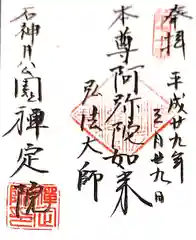 奉拝
平成廿九年三月廿九日
本尊阿弥陀如来
弘法大師
石神井公園禅定院